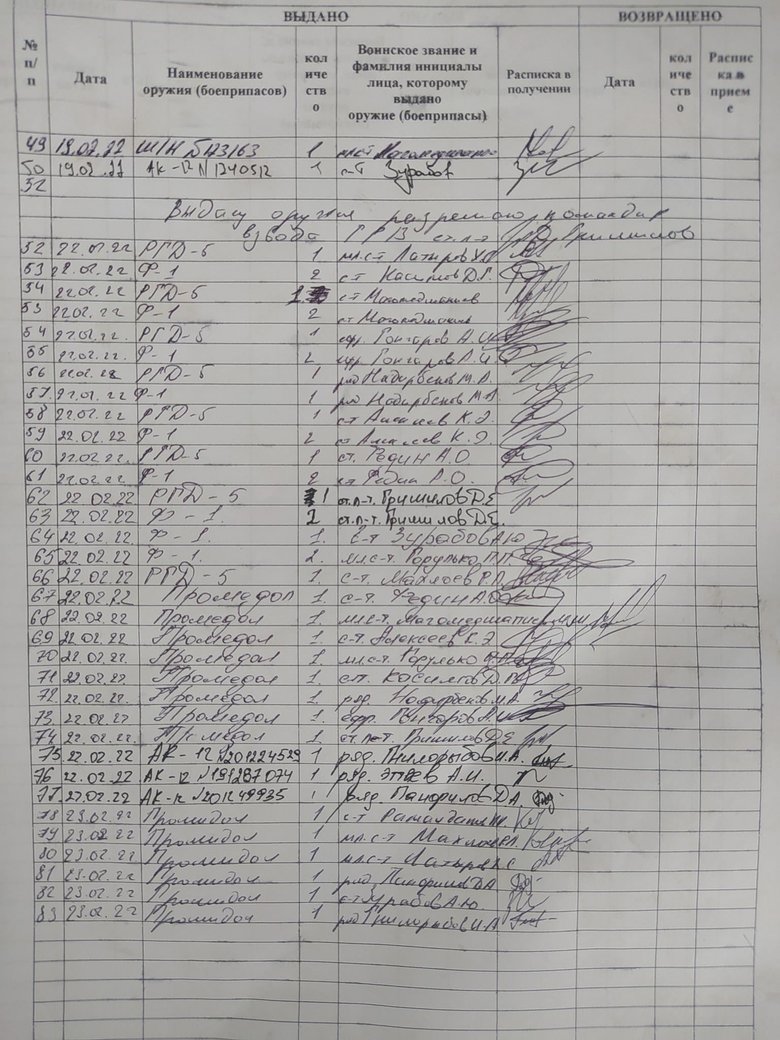 ВЫДАНО ВОЗВРАЩЕНО
№ п/п Дата Наименование оружия (боеприпасов) количество Воинское звание и фамилия инициалы лица, которому выдано оружие (боеприпасы) Расписка в получении Дата количество Расписка в приеме
49 19.02.22 1 мл.с-т
50 19.02.22 АК-12 N 1240512 1 Зурабов
52
Выдачу оружия разрешаю командир
взвода ст. л-т Гришилов
52 22.02.22 РГД-5 1 мл.с-т
53 22.02.22 Ф-1 2 с-т Касимов Д.Г.
54 22.02.22 РГД-5 1 с-т
53 22.02.22 Ф-1 2 с-т
54 22.02.22 РГД-5 1 ефр. Гончаров А.И.
55 22.02.22 Ф-1 2 ефр. Гончаров А.И.
56 22.02.22 РГД-5 1 ряд Надырбеков М.А.
57 22.02.22 Ф-1 1 ряд Надырбеков М.А.
58 22.02.22 РГД-5 1 с-т Алексеев К.Э.
59 22.02.22 Ф-1 2 с-т Алексеев К.Э.
60 22.02.22 РГД-5 1 с-т. Федин А.О.
61 22.02.22 Ф-1 2 с-т Федин А.О.
62 22.02.22 РГД-5 1 ст.л-т. Гришилов Д.Е.
63 22.02.22 Ф-1. 2 ст.л-т. Гришилов Д.Е.
64 22.02.22 Ф-1. 1. с-т Зурабов А.Ю.
65 22.02.22 Ф-1. 2. мл.с-т. Горулько П.П.
66 22.02.22 РГД-5 1. с-т.
67 22.02.22 Промедол 1. с-т. Федин А.О.
68 22.02.22 Промедол 1. мл.с-т.
69 22.02.22 Промедол 1. с-т. Алексеев К.Э.
70 22.02.22 Промедол 1. мл.с-т. Горулько
71 22.02.22. Промедол 1. с-т.
72 22.02.22 Промедол 1. ряд. Надырбеков М.А.
73. 22.02.22 Промедол 1. ефр. Гончаров А.И.
74 22.02.22 1. ст.л-т. Гришилов Д.Е.
75 22.02.22 АК-12 №201224529 1 ряд. Гнилорыбов И.А.
76 22.02.22 АК-12 №191287074 1 ряд. А.И.
77 22.02.22 АК-12 №201249935 1 ряд. Панфилов Д.А.
78 23.02.22 Промидол 1 с-т
79 23.02.22 Промидол 1 мл.с-т
80 23.02.22 Промидол 1 мл.с-т
81 23.02.22 Промидол 1 ряд. Панфилов Д.А.
82 23.02.22 Промидол 1 с-т Зурабов А.Ю
83 23.02.22 Промидол 1 ряд Гнилорыбов И.А